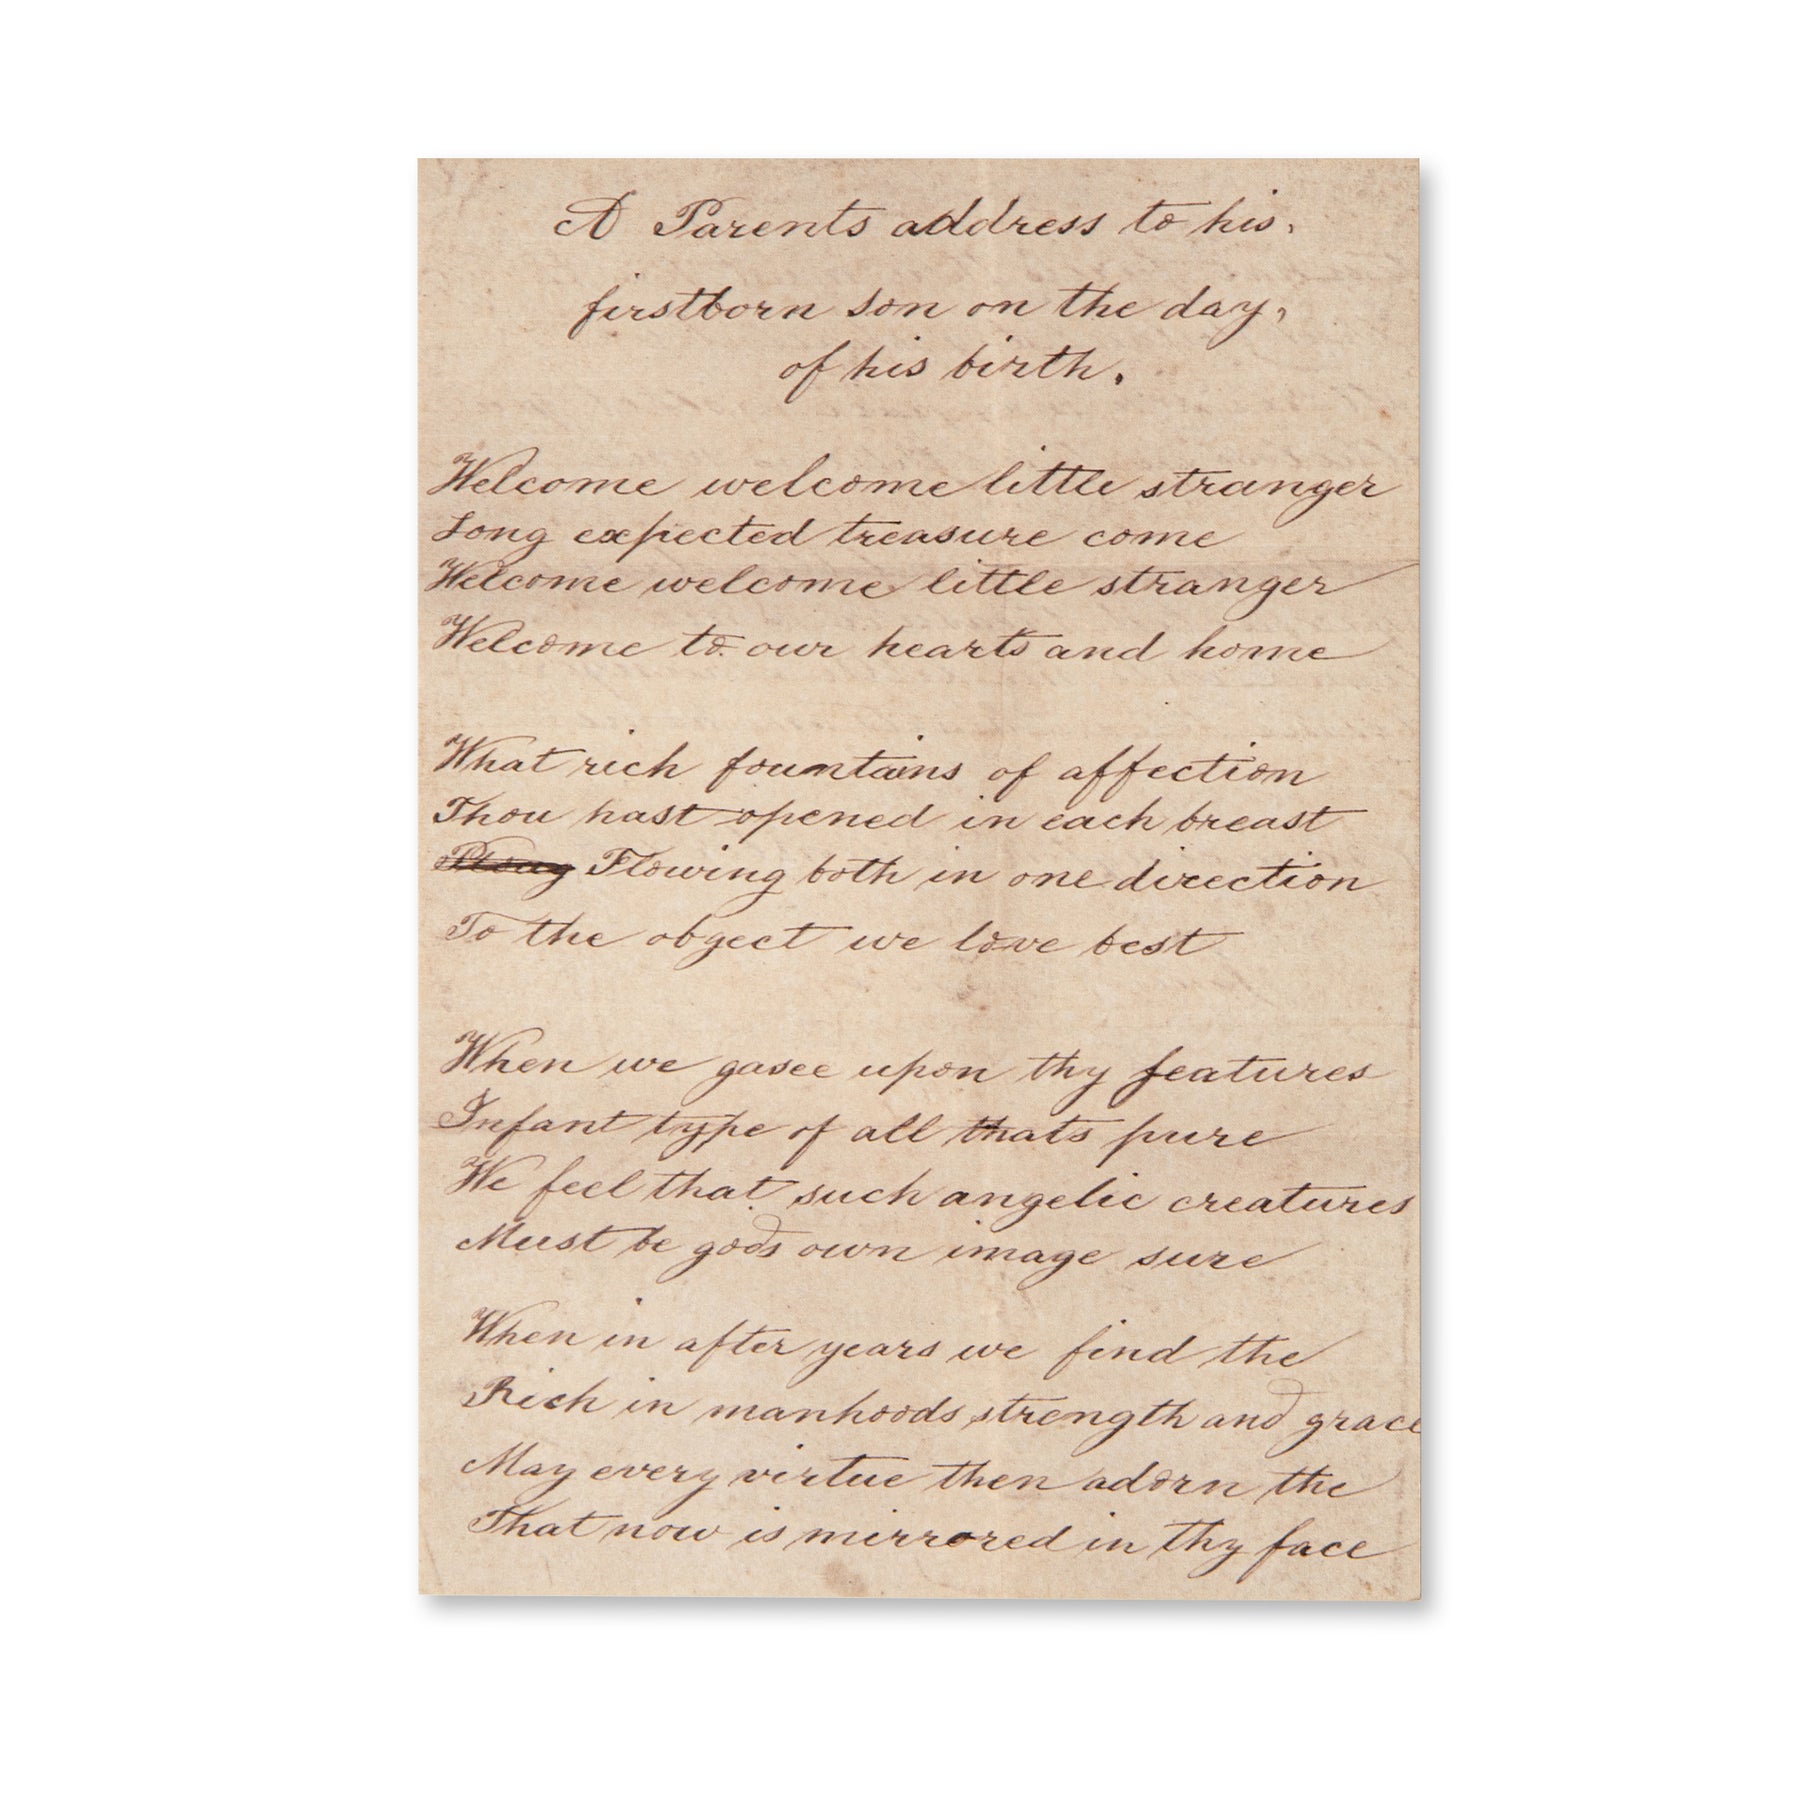 A Parents address to his,
firstborn son on the day,
of his birth.
Welcome welcome little stranger
Long expected treasure come
Welcome welcome little stranger
Welcome to our hearts and home
What rich fountains of affection
Thou hast opened in each breast
Flowing both in one direction
To the obgect we love best
When we gasee upon thy features
Infant type of all thats pure
We feel that such angelic creatures
Must be gods own image sure
When in after years we find the
Rich in manhoods strength and grace
May every virtue then adorn the
That now is mirrored in thy face